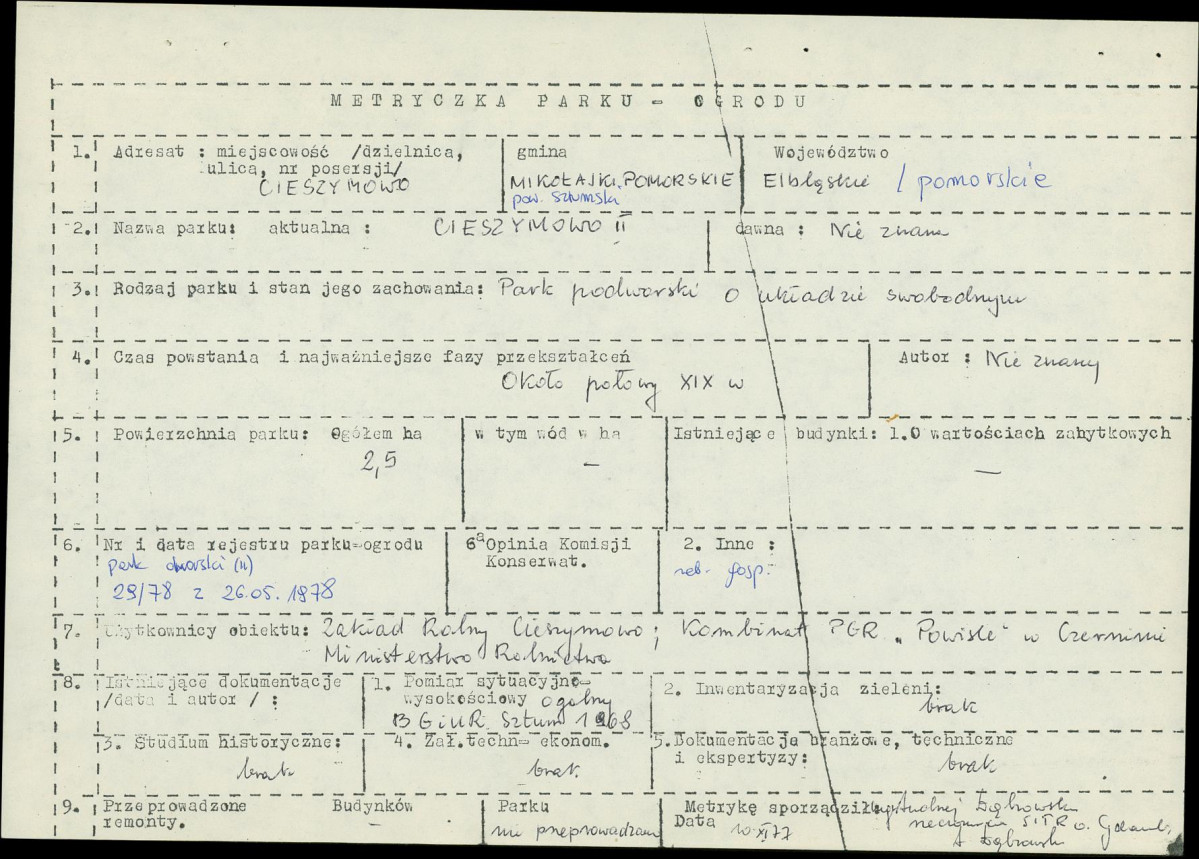 METRYCZKA PARKU - OGRODU
1. Adresat : miejscowość /dzielnica, ulica, nr posersji/
CIESZYMOWO
gmina
MIKOŁAJKI POMORSKIE
pow. Sztumski
Województwo
Elbląskie / pomorskie
2. Nazwa parku: aktualna : CIESZYMOWO II
dawna : Nie znana
3. Rodzaj parku i stan jego zachowania: Park podworski o układzie swobodnym
4. Czas powstania i najważniejsze fazy przekształceń
Około połowy XIX w
Autor : Nie znany
5. Powierzchnia parku: Ogółem ha
2,5
w tym wód w ha
—
Istniejące budynki: 1.O wartościach zabytkowych
—
6. Nr i data rejestru parku-ogrodu
park dworski (II)
29/78 z 26.05.1978
6a Opinia Komisji
Konserwat.
2. Inne :
zeb. gosp.
7. Użytkownicy obiektu: Zakład Rolny Cieszymowo; Kombinat PGR „Powiśle" w Czerninie
Ministerstwo Rolnictwa
8. Istniejące dokumentacje
/data i autor / :
1. Pomiar sytuacyjno-
wysokościowy ogólny
BGiUR Sztum 1968
2. Inwentaryzacja zieleni:
brak
3. Studium historyczne:
brak
4. Zał.techn- ekonom.
brak
5. Dokumentacje branżowe, techniczne
i ekspertyzy:
brak
9. Przeprowadzone
remonty.
Budynków
—
Parku
nie przeprowadzano
Metrykę sporządził:
Data 10 XI 77
SITR o. Gdańsk
A Dąbrowski